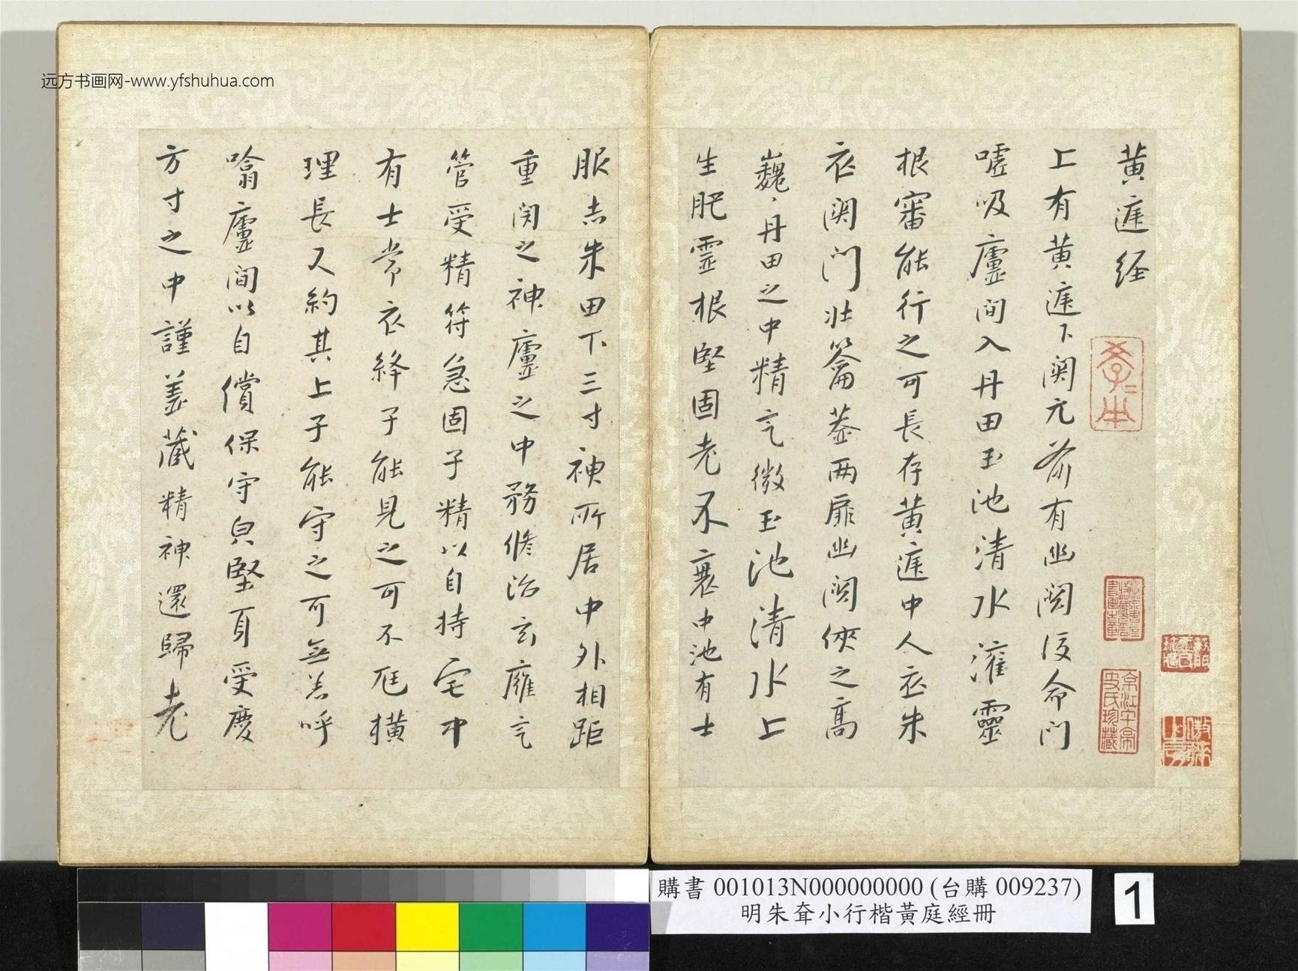 远方书画网-www.yfshuhua.com
黄庭经
上有黄庭下関元前有幽闕後命門
嘘吸廬間入丹田玉池清水灌靈
根審能行之可長存黄庭中人衣朱
衣関門壮籥蓋两扉幽闕俠之髙
巍〻丹田之中精氣微玉池清水上
生肥靈根堅固老不衰中池有士
服赤朱田下三寸神所居中外相距
重関之神廬之中務修治玄廱氣
管受精符急固子精以自持宅中
有士常衣絳子能見之可不尫横
理長尺約其上子能守之可無恙呼
噏廬間以自償保守皃堅身受慶
方寸之中謹盖藏精神還歸老
購書 001013N000000000 (台購 009237)
明朱耷小行楷黃庭經冊
1